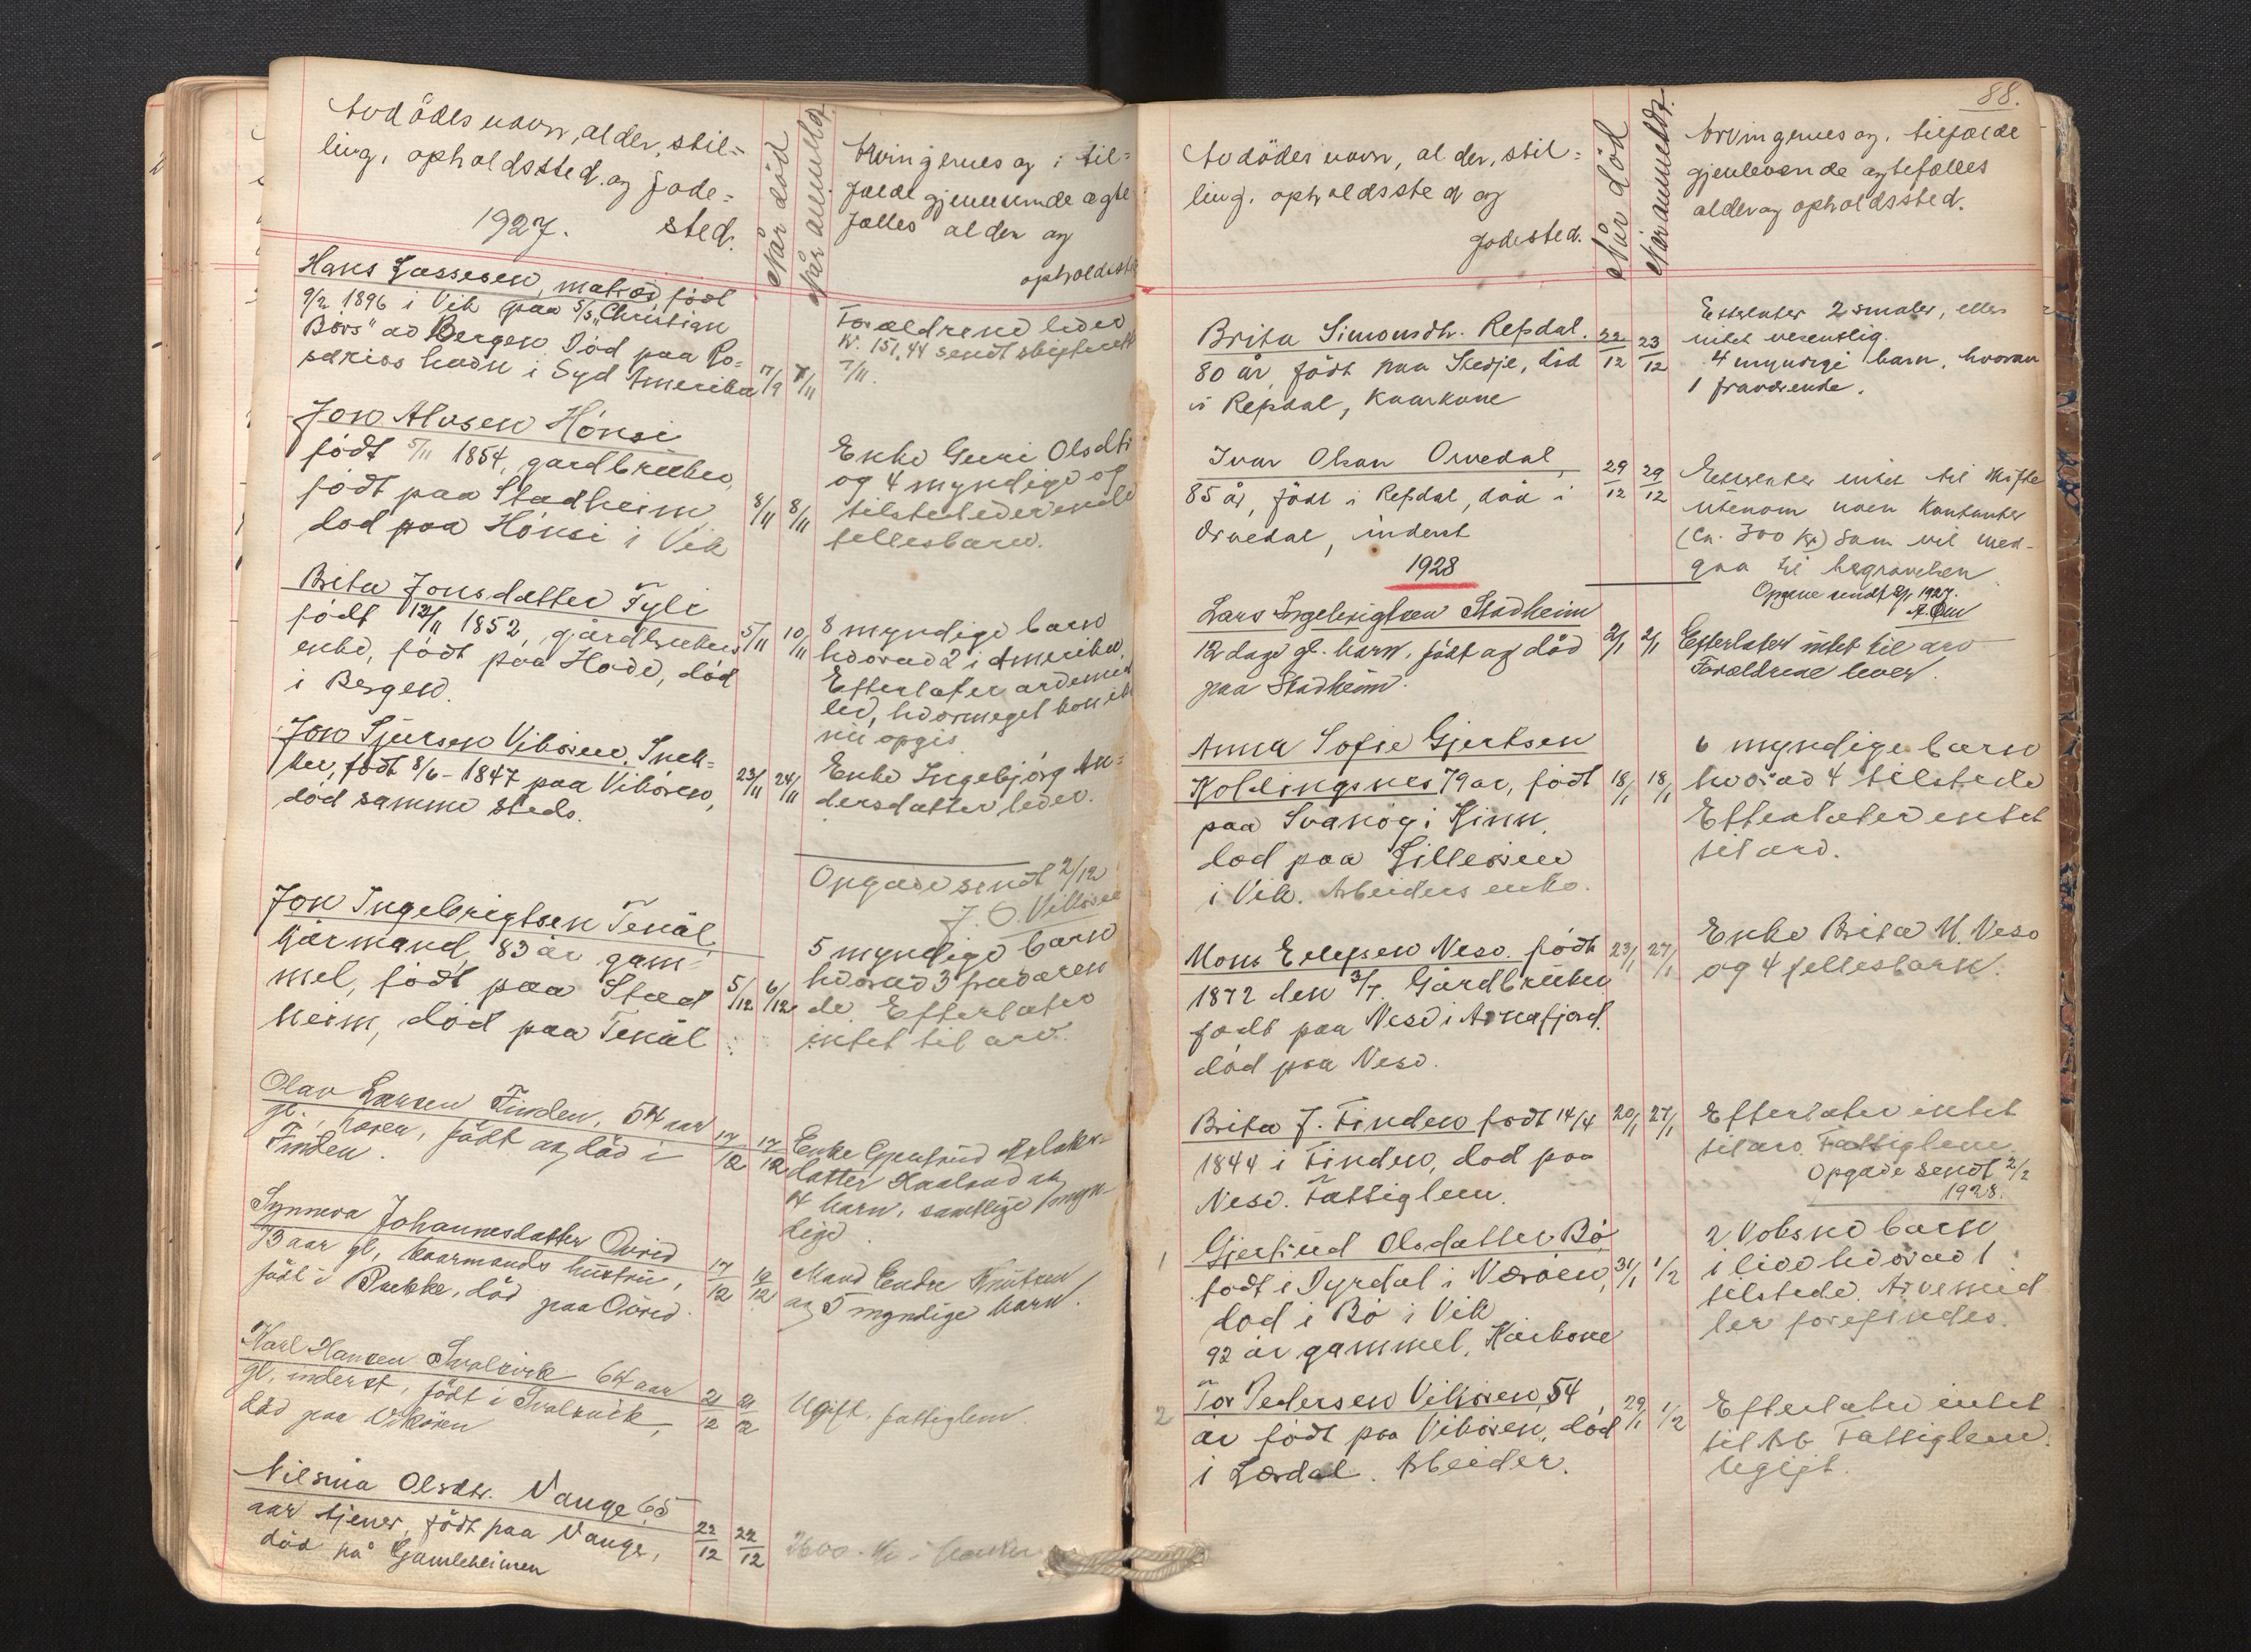 Avdödes navn, alder, stil=
ling, opholdssted og föde=
sted.
1927.
Når död
Når anmeldt
Arvingernes og i til=
fælde gjenlevende ægte
fælles alder og
opholdsste
Hans Lassesen, matros, født
9/2 1896 i Vik paa S/S "Christian
Börs" av Bergen. Död paa Ro=
sarios havn i Syd Amerika
17/9
7/11
Forældrene lever
Kr. 151,44 sendt skifterett
7/11.
Jon Alvsen Hönsi
födt 5/11 1854, gardbruker,
födt paa Stadheim
död paa Hönsi i Vik
8/11
8/11
Enke Guri Olsdtr
og 4 myndige og
tilstedeværende
fellesbarn.
Brita Jonsdatter Tyli
födt 12/11 1852, gårdbrukers
enke, födt paa Hove, död
i Bergen.
5/11
10/11
8 myndige barn
hvorav 2 i Amerika.
Efterlater arvemid
ler, hvormeget kan ikk
nu opgis.
Jon Sjursen Vikören. Snek=
ker, födt 8/6 - 1847 paa Vikören,
död samme steds.
23/11
24/11
Enke Ingebjörg An=
dersdatter lever.
Opgave sendt 2/12
J. O. Vikören
Jon Ingebrigtsen Tenål,
Kårmand, 83 år gam=
mel, födt paa Stad
heim, död paa Tenål
5/12
6/12
5 myndige barn
hvorav 3 fraværen
de Efterlater
intet til arv.
Olav Larsen Finden, 54 aar
gl. födt og död i
Finden.
17/12
17/12
Enke Gjertrud
datter og
4 barn, samtlige myn=
dige.
Synneva Johannesdatter Övrid
73 aar gl, kaarmands hustru,
födt i Brekke, död paa Övrid.
17/12
19/12
Mand Endre Knutsen
og 5 myndige barn.
Karl Hansen Svolsvik 64 aar
gl, inderst, födt i Svolsvik,
död paa Vikören
21/12
21/12
Ugift. fattiglem
Nilsina Olsdtr. Vange 65
aar tjener, födt paa Vange,
död på Gamleheimen
22/12
22/12
2600.- kr i banken
88.
Avdödes navn, alder, stil=
ling, opholdssted og
födested.
Når död
Når anmeldt.
Arvingernes og, tilfælde
gjenlevende ægtefælles
alder og opholdssted.
Brita Simonsdtr. Refsdal.
80 år, födt paa Skedje, död
i Refsdal, Kaarkone
22/12
23/12
Efterlater 2 smaler, ellers
intet vesentlig.
4 myndige barn, hvorav
1 fraværende.
Ivar Olsen Orvedal,
85 år, födt i Refsdal, död i
Orvedal, inderst
29/12
29/12
Efterlater intet til skifte
utenom noen kontanter
(Ca. 300 Kr) som vil med-
gaa til begravelsen.
Opgave sendt 2/1 1927.
1928
Lars Ingebrigtsen Stadheim
12 dage gl. barn, födt og död
paa Stadheim.
2/1
2/1
Efterlater intet til arv
Forældrene lever.
Anna Sofie Gjertsen
Koldingsnes 79 ar, födt
paa Svanög i Kinn,
död paa Lilleören
i Vik. Arbeiders enke.
18/1
18/1
6 myndige barn
hvorav 4 tilstede
Efterlater intet
til arv.
Mons Ellefsen Nese. födt
1872 den 3/7. Gårdbruker
födt paa Nese i Arnafjord.
död paa Nese.
23/1
27/1
Enke Brita M. Nese
og 4 fellesbarn.
Brita J. Finden födt 14/4
1844 i Finden, död paa
Nese. Fattiglem.
20/1
27/1
Efterlater intet
til arv. Fattiglem
Opgave sendt 2/2
1928.
1
Gjertrud Olsdatter Bö,
födt i Dyrdal i Næröen,
död i Bö i Vik
92 år gammel, Kårkone
31/1
1/2
2 voksne barn
i live hvorav 1
tilstede. Arvemid
ler forefindes.
2
Tor Pedersen Vikören, 54
år födt paa Vikören, död
i Lærdal. Arbeider.
29/1
1/2
Efterlater intet
til Arv. Fattiglem.
Ugift.